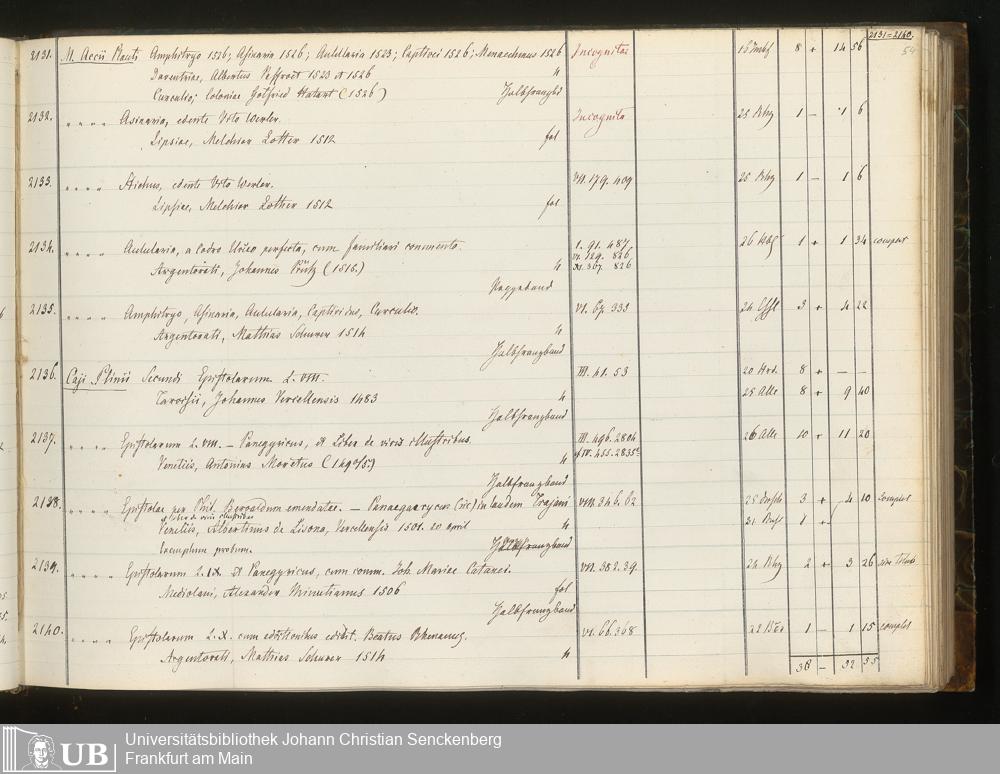 2131=2140.
54
2131. M. Accii Plauti Amphitryo 1526; Asinaria 1526; Aulularia 1523; Captivei 1526; Menaechmus 1526 Incognitae 8 + 14 56
Daventriae, Albertus Paffroet 1523 et 1526 4
Curculio; Coloniae Gotfried (1526) Halbfranzbd
2132. " " " " Asinaria, edente Vito Werler. Incognita 25 Rhg 1 — 1 6
Lipsiae, Melchior Lotter 1512 fol
2133. " " " " Stichus, edente Vito Werler. VII. 179. 409 25 Rhg 1 — 1 6
Lipsiae, Melchior Lotther 1512 fol
2134. " " " " Aulularia, a Codro Urceo perfecta, cum familiari commento. 1. 91. 487 1 + 1 34 complet
Argentorati, Johannes Prütz (1515.) 4 VI. 129. 826
XI. 367. 826
Pappeband
2135. " " " " Amphitryo, Asinaria, Aulularia, Captivi duo, Curculio. VI. 67 333 3 + 4 22
Argentorati, Mathias Schurer 1514 4
Halbfranzband
2136. Caji Plinii Secundi Epistolarum L. VIII. III. 41. 53 8 + — —
Tarvisii, Johannes Vercellensis 1483 4 25 Alle 8 + 9 40
Halbfranzband
2137. " " " " Epistolarum L. VIII. — Panegyricus, et Liber de viris illustribus. III. 496. 2804 26 Alle 10 + 11 20
Venetiis, Antonius Moretus 4 cf IV. 455. 2835
Halbfranzband
2138. " " " " Epistolae per Phil. Beroaldum emendatae. — Panaegaerycus (sic) in laudem Trajani VIII. 346. 62 3 + 4 10 complet
et liber de viris illustribus
Venetiis, Albertinus de Lisona, Vercellensis 1501. 20 april 4 1 +
Exemplum probum. Halbfranzband
2139. " " " " Epistolarum L. IX. et Panegyricus, cum comm. Joh. Mariae Catanei. VII. 382. 39. 24 Rhg 2 + 3 26
Mediolani, Alexander Minutianus 1506 fol
Halbfranzband
2140. " " " " Epistolarum L. X. cum edit. Beatus Rhenanus. VI. 66. 368 1 — 1 15 complet
Argentorati, Mathias Schurer 1514 4
38 — 52 35
UB Universitätsbibliothek Johann Christian Senckenberg
Frankfurt am Main